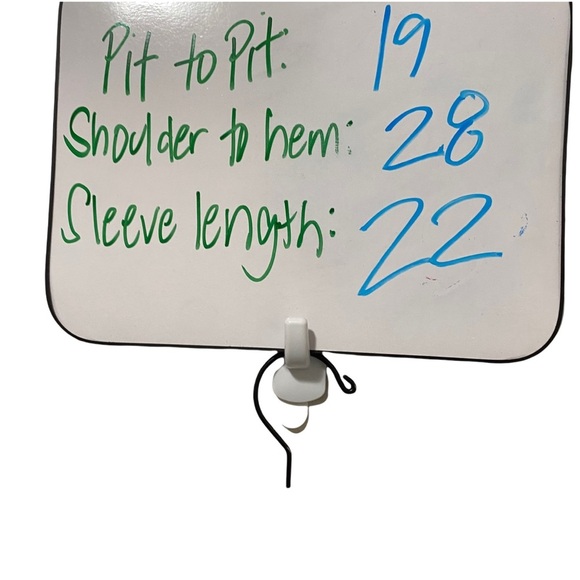 Pit to Pit: 19
Shoulder to hem: 28
Sleeve length: 22